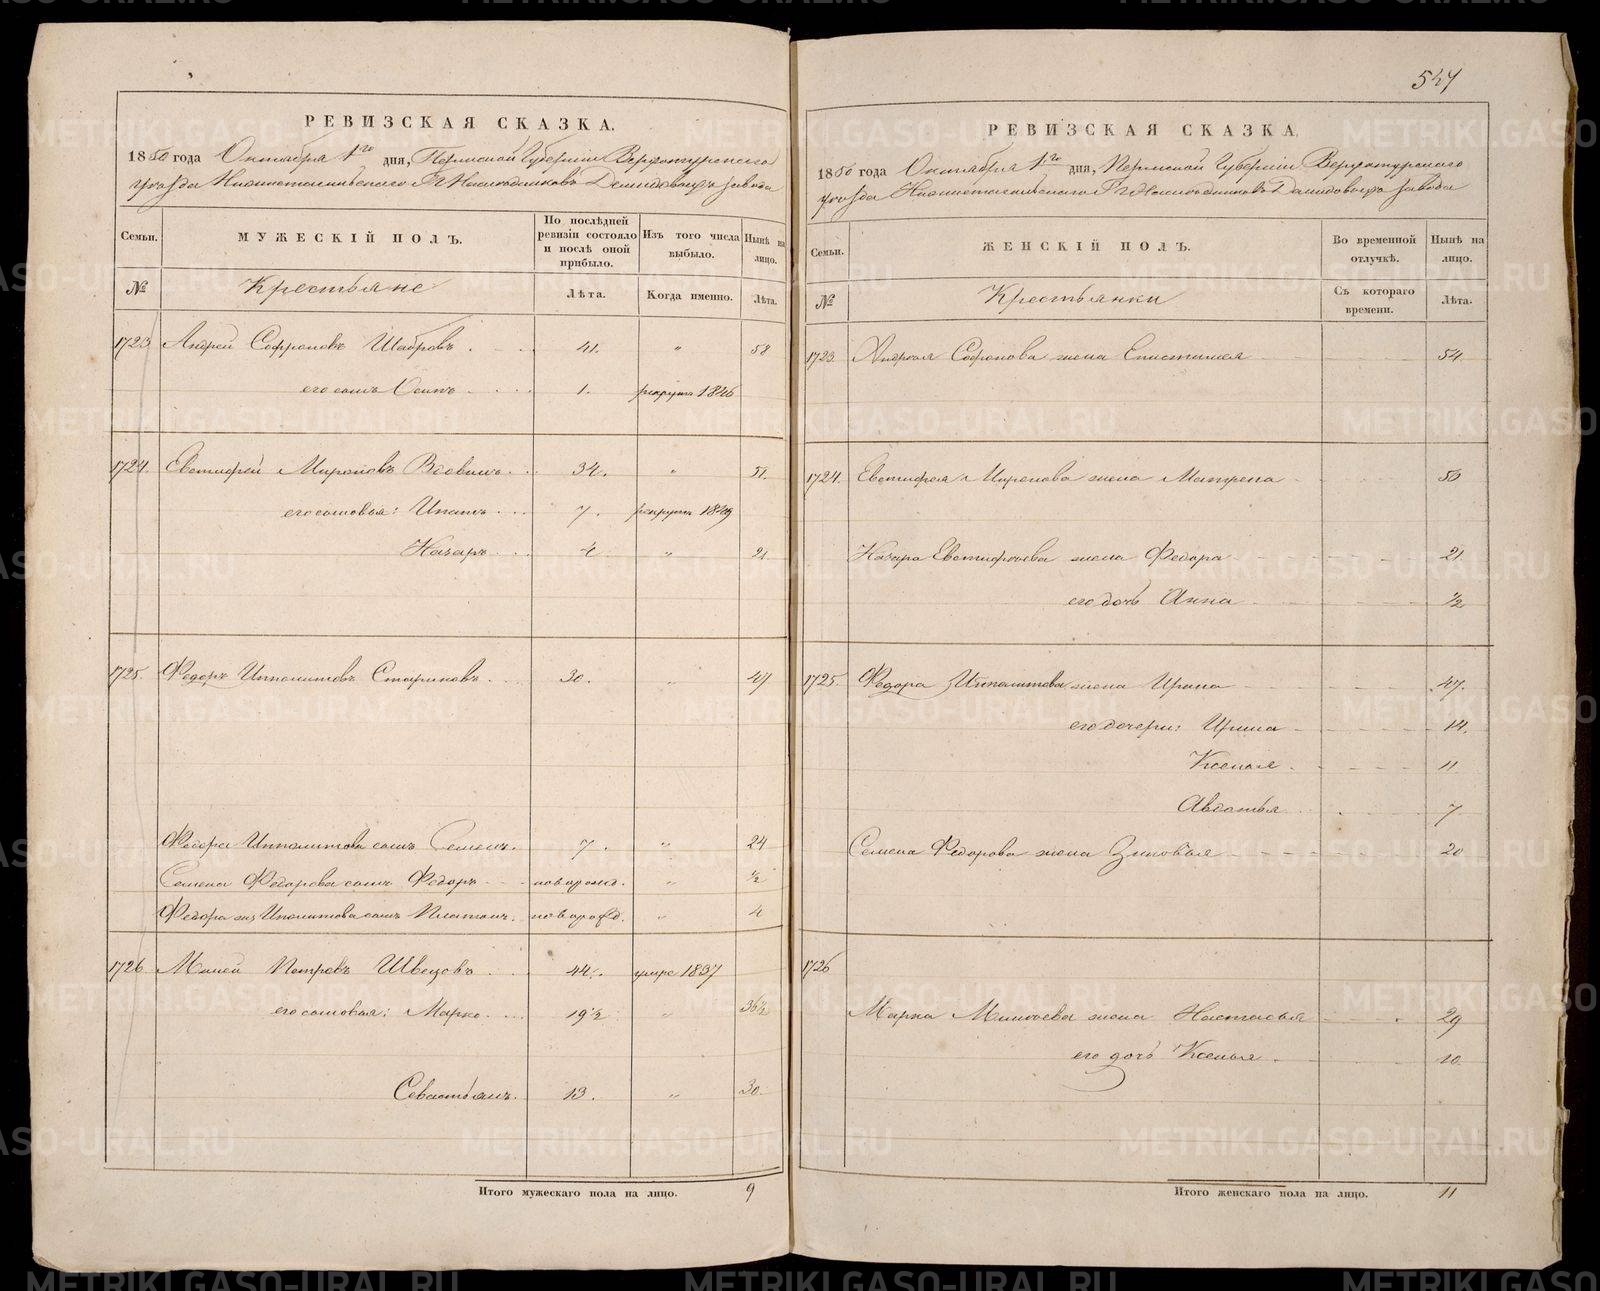 547
РЕВИЗСКАЯ СКАЗКА.
1850 года Октября 1го дня, Пермской Губерніи Верхотурскаго
уезда Нижнетагильскаго Гг Наследниковъ Демидовыхъ завода
Семьи. МУЖЕСКІЙ ПОЛЪ. По послѣдней ревизіи состояло и послѣ оной прибыло. Изъ того числа выбыло. Нынѣ на лицо.
№ Крестьяне Лѣта. Когда именно. Лѣта.
1723 Андрей Софроновъ Шабровъ 41. " 58
его сынъ Осипъ 1. рекрутъ 1846
1724. Евстифей Мироновъ Вдовинъ 34. " 51.
его сыновья: Ипатъ 7. рекрутъ 1849
Назаръ 4 " 21
1725. Федоръ Ипполитовъ Стариковъ 30. " 47
Федора Ипполитова сынъ Семенъ. 7. " 24
Семена Федорова сынъ Федоръ новорожд. " 1/2
Федора Ипполитова сынъ Платонъ. новорожд. " 4
1726 Миней Петровъ Швецовъ 44. умре 1837
его сыновья: Марко. 19 1/2 " 36 1/2
Севастьянъ. 13. " 30
Итого мужескаго пола на лицо. 9
РЕВИЗСКАЯ СКАЗКА.
1850 года Октября 1го дня, Пермской Губерніи Верхотурскаго
уезда Нижнетагильскаго Гг Наследниковъ Демидовыхъ завода
Семьи. ЖЕНСКІЙ ПОЛЪ. Во временной отлучкѣ. Нынѣ на лицо.
№ Крестьянки Съ котораго времени. Лѣта.
1723 Андрея Софронова жена Епистимея 54
1724. Евстифея Миронова жена Матрена 50
Назара Евстифеева жена Федора 21
его дочь Анна 1/2
1725 Федора Ипполитова жена Ирина 47.
его дочери: Ирина 14.
Ксенья 11
Авдотья 7
Семена Федорова жена Зиновья 20
1726
Марка Минеева жена Настасья 29
его дочь Ксенья 10
Итого женскаго пола на лицо. 11
METRIKI.GASO-URAL.RU